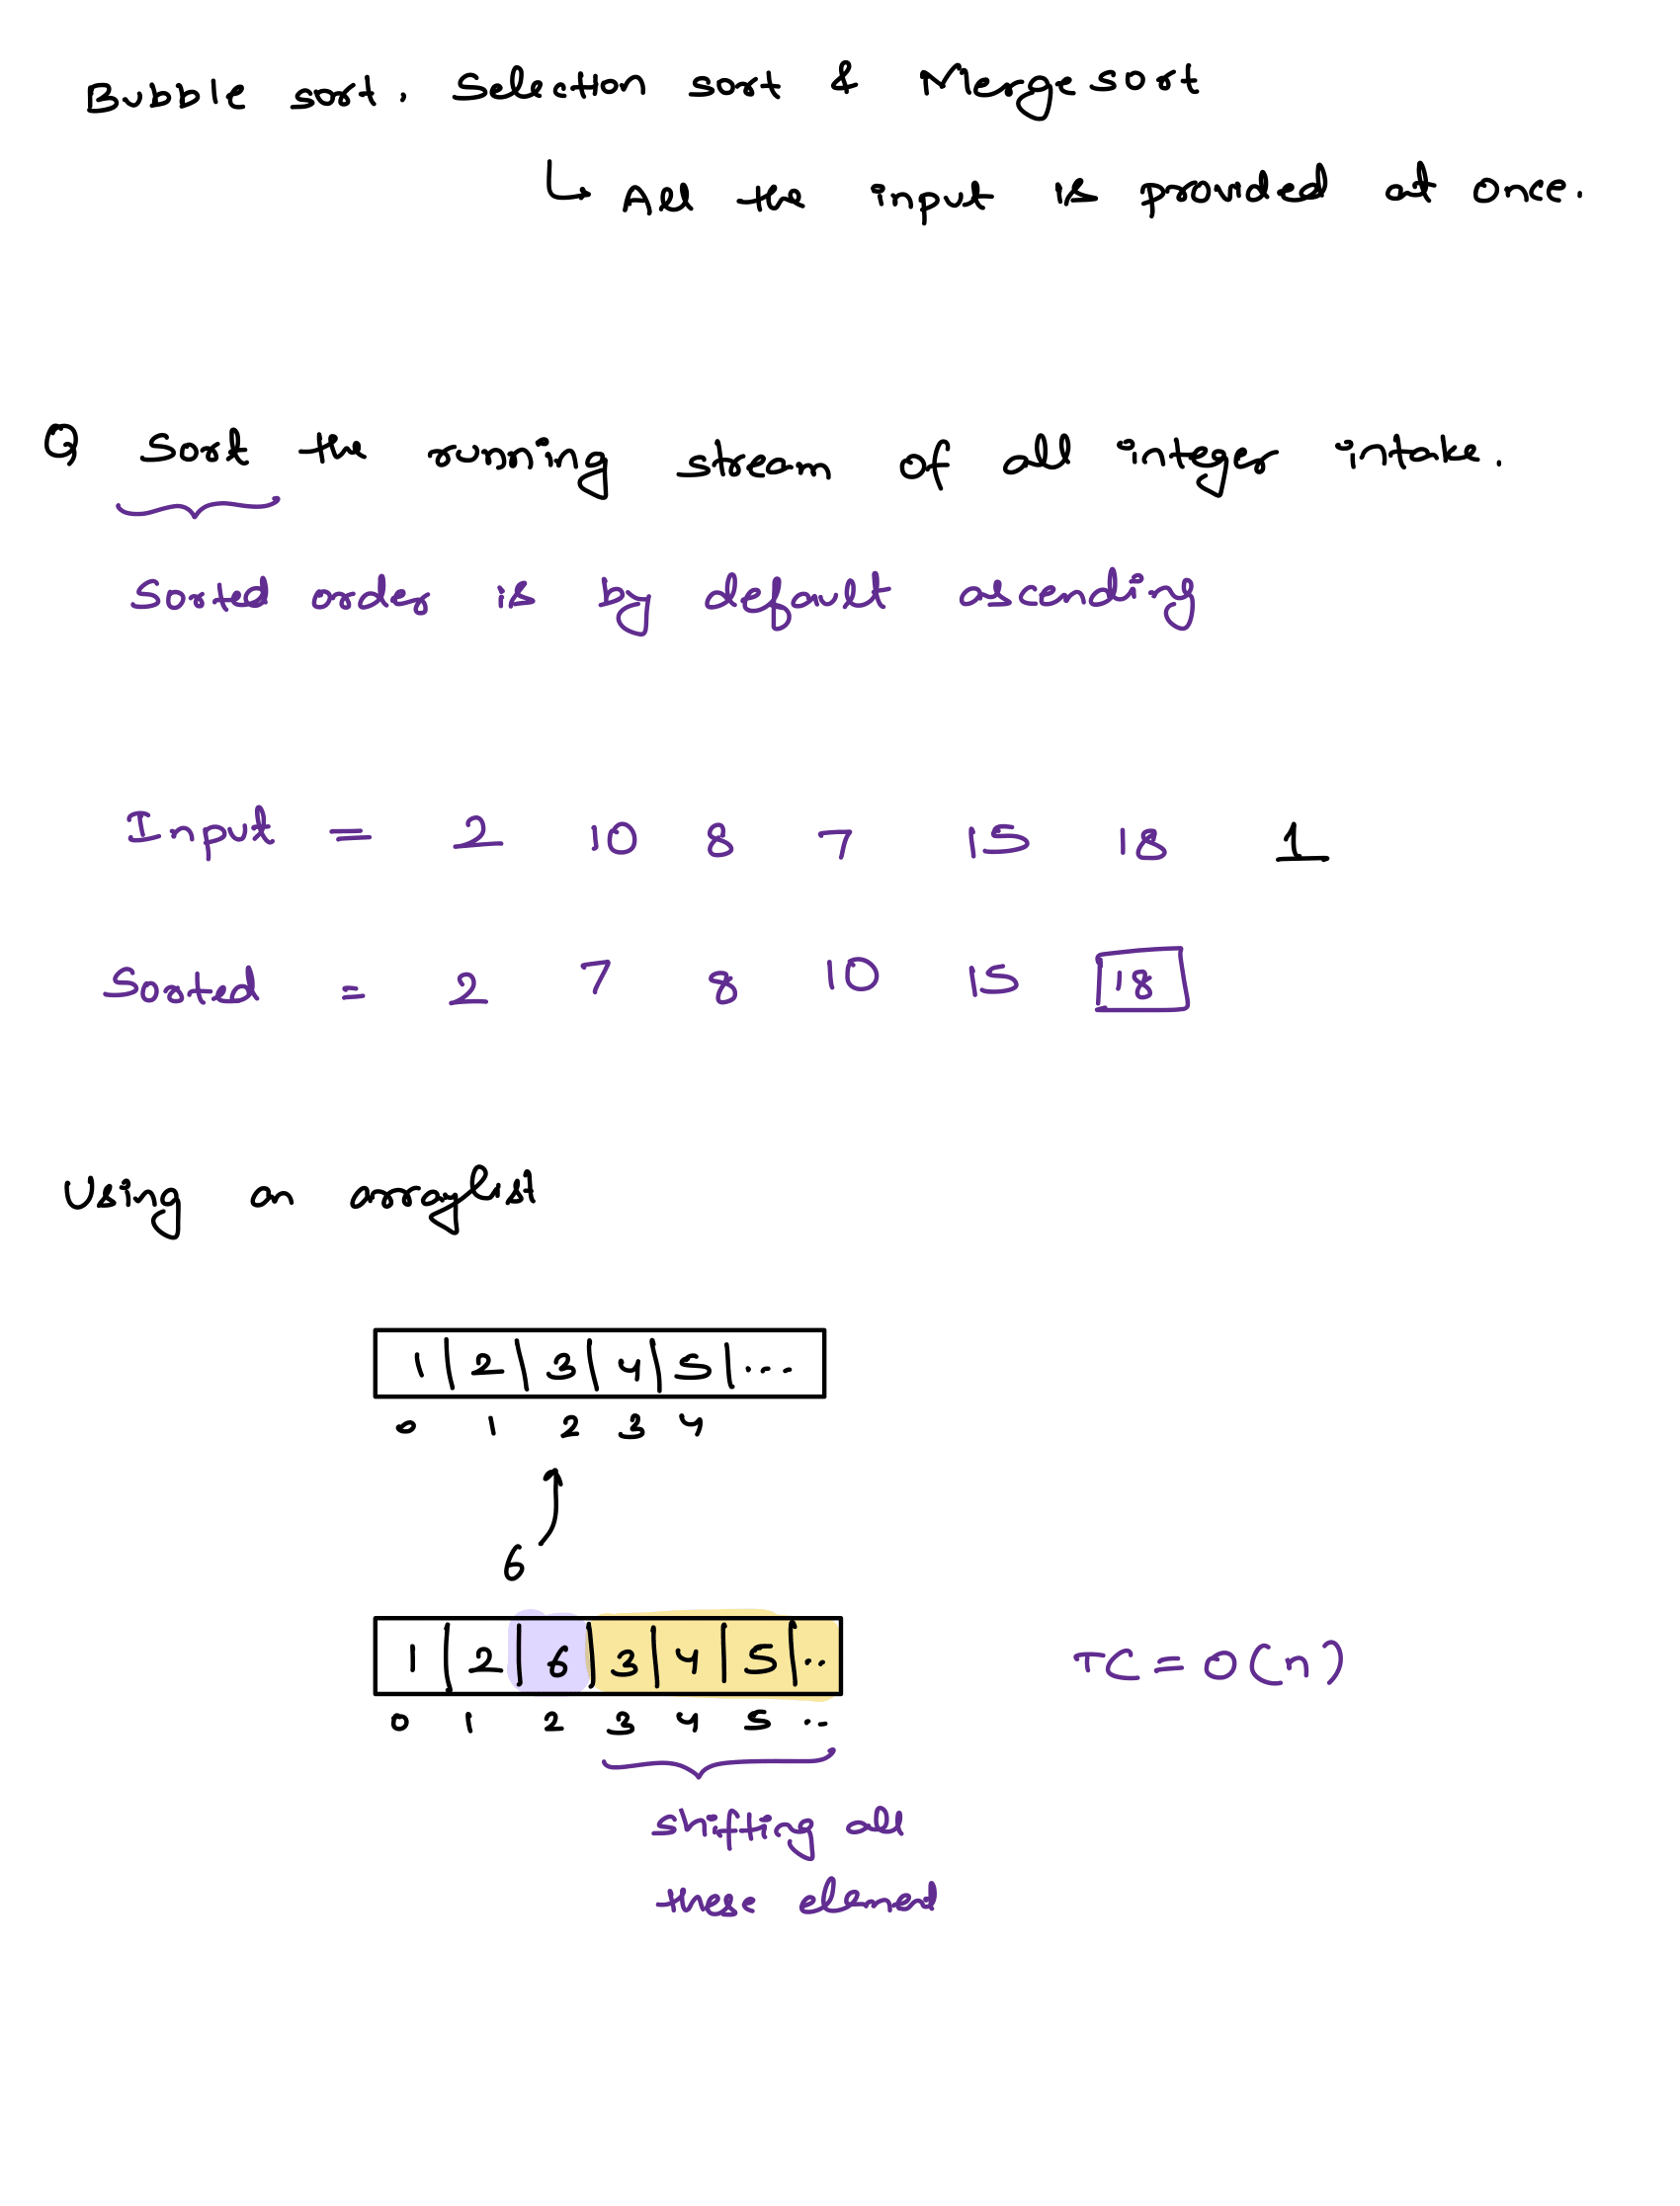 Bubble sort, Selection sort & Mergesort
All the input is provided at once.
Q Sort the running stream of all integer intake.
Sorted order is by default ascending
Input = 2 10 8 7 15 18 1
Sorted = 2 7 8 10 15 18
Using an arraylist
1 | 2 | 3 | 4 | 5 | ...
0 1 2 3 4
6
1 | 2 | 6 | 3 | 4 | 5 | ..
TC = O(n)
0 1 2 3 4 5 ..
shifting all
these element